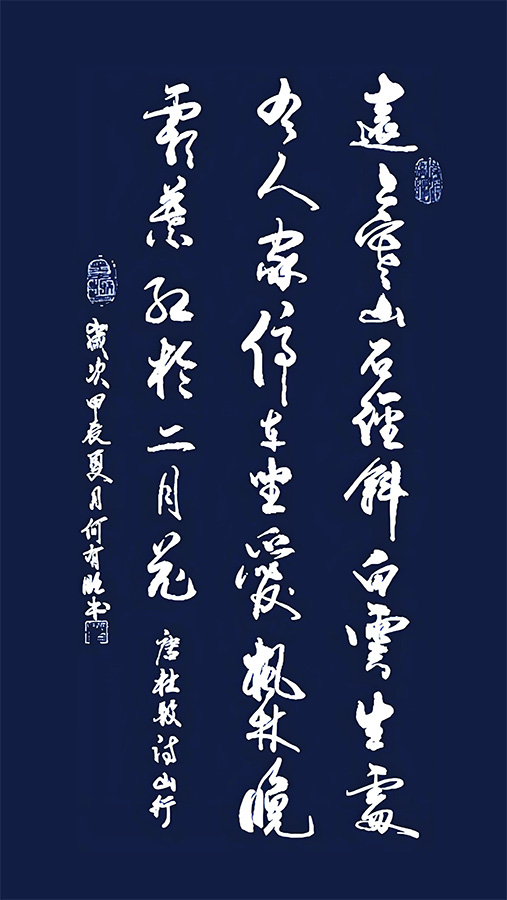 遠上寒山石經斜白雲生處
有人家停車坐愛楓林晚
霜葉紅於二月花
唐杜牧詩山行
歲次甲辰夏月何有書